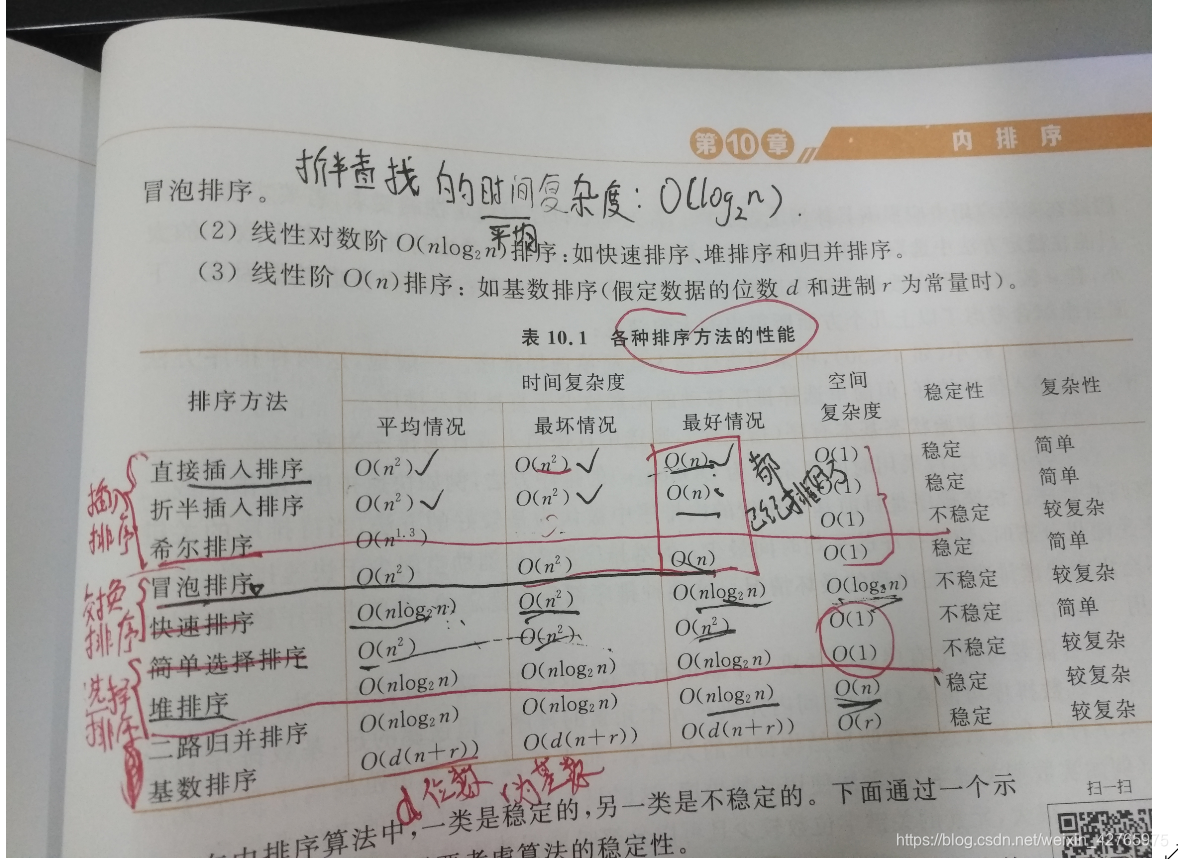 第10章 内 排 序
折半查找的的时间复杂度：O(log₂n).
平均
冒泡排序。
（2）线性对数阶 O(nlog₂n)排序：如快速排序、堆排序和归并排序。
（3）线性阶 O(n)排序：如基数排序(假定数据的位数 d 和进制 r 为常量时)。
表 10.1 各种排序方法的性能
排序方法 时间复杂度 空间复杂度 稳定性 复杂性
平均情况 最坏情况 最好情况
直接插入排序 O(n²) O(n²) O(n) O(1) 稳定 简单
折半插入排序 O(n²) O(n²) O(n) O(1) 稳定 简单
希尔排序 O(n¹·³) O(1) 不稳定 较复杂
冒泡排序 O(n²) O(n²) O(n) O(1) 稳定 简单
快速排序 O(nlog₂n) O(n²) O(nlog₂n) O(log₂n) 不稳定 较复杂
简单选择排序 O(n²) O(n²) O(n²) O(1) 不稳定 简单
堆排序 O(nlog₂n) O(nlog₂n) O(nlog₂n) O(1) 不稳定 较复杂
二路归并排序 O(nlog₂n) O(nlog₂n) O(nlog₂n) O(n) 稳定 较复杂
基数排序 O(d(n+r)) O(d(n+r)) O(d(n+r)) O(r) 稳定 较复杂
插入排序
交换排序
选择排序
都已经排
d 位数 r为基数
内排序算法中，一类是稳定的，另一类是不稳定的。下面通过一个示
考虑算法的稳定性。
扫一扫
https://blog.csdn.net/weixin_42765975